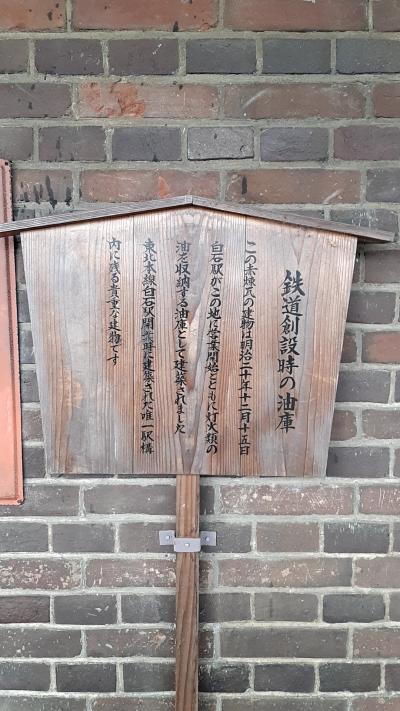 鉄道創設時の油庫
この赤煉瓦の建物は明治二十年十二月十五日
白石駅がこの地に営業開始とともに灯火類の
油を収納する油庫として建築されました
東北本線白石駅開業時に建築された唯一駅構
内に残る貴重な建物です